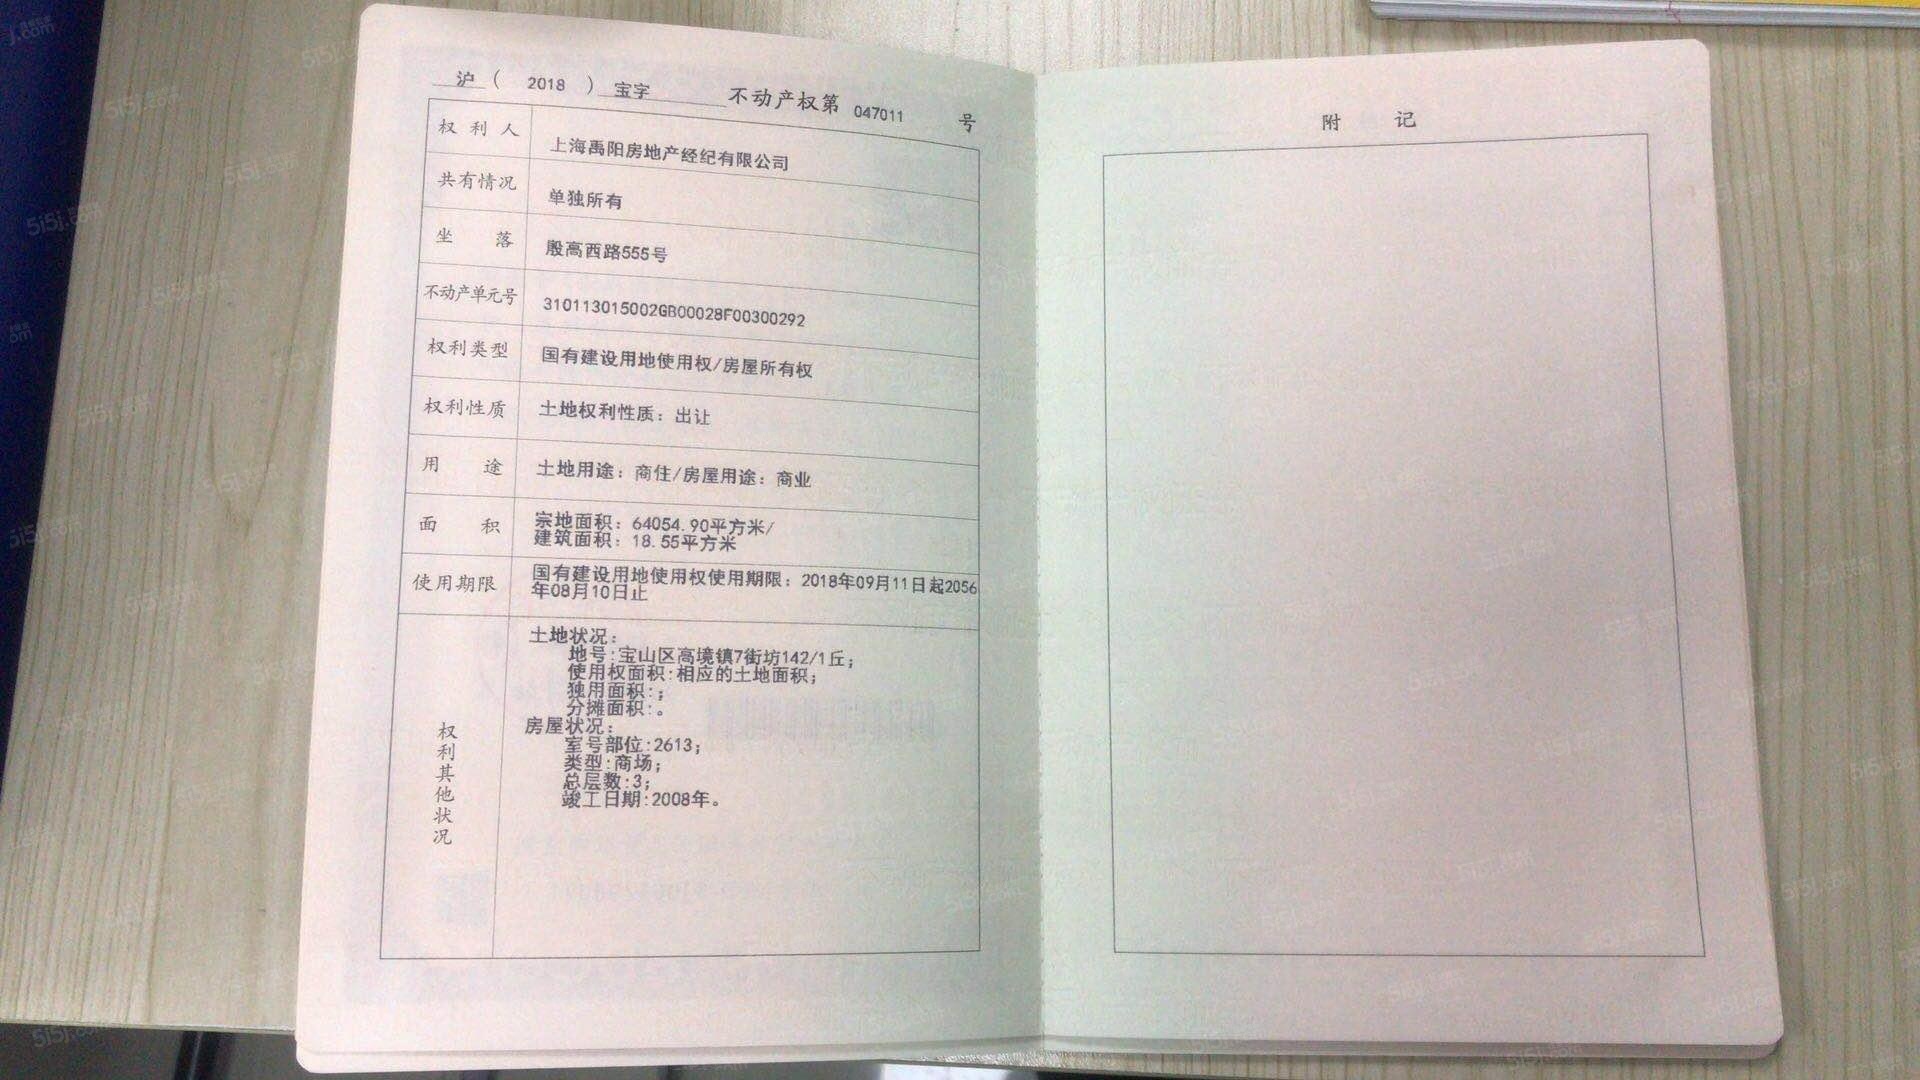 沪（ 2018 ）宝字 不动产权第 047011 号
权利人 上海禹阳房地产经纪有限公司
共有情况 单独所有
坐落 殷高西路555号
不动产单元号 310113015002GB00028F00300292
权利类型 国有建设用地使用权/房屋所有权
权利性质 土地权利性质：出让
用途 土地用途：商住/房屋用途：商业
面积 宗地面积：64054.90平方米/
建筑面积：18.55平方米
使用期限 国有建设用地使用权使用期限：2018年09月11日起2056
年08月10日止
权利其他状况
土地状况：
地号:宝山区高境镇7街坊142/1丘；
使用权面积:相应的土地面积；
独用面积:；
分摊面积:。
房屋状况：
室号部位:2613；
类型:商场；
总层数:3；
竣工日期:2008年。
附记